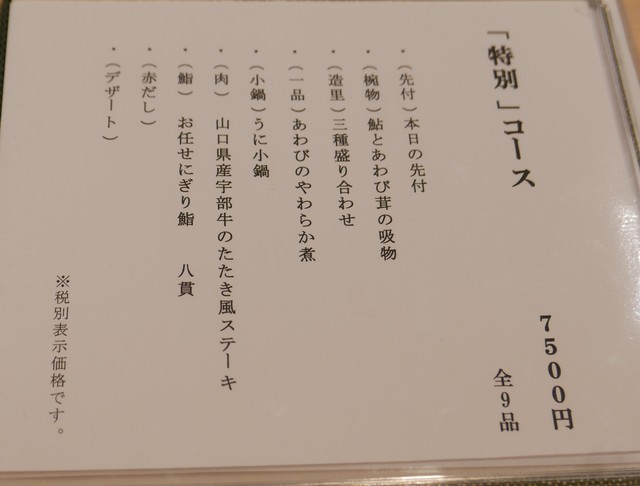 「特別」コース
7500円
全9品
・(先付)本日の先付
・(椀物)鮎とあわび茸の吸物
・(造里)三種盛り合わせ
・(一品)あわびのやわらか煮
・(小鍋)うに小鍋
・(肉) 山口県産宇部牛のたたき風ステーキ
・(鮨) お任せにぎり鮨 八貫
・(赤だし)
・(デザート)
※税別表示価格です。